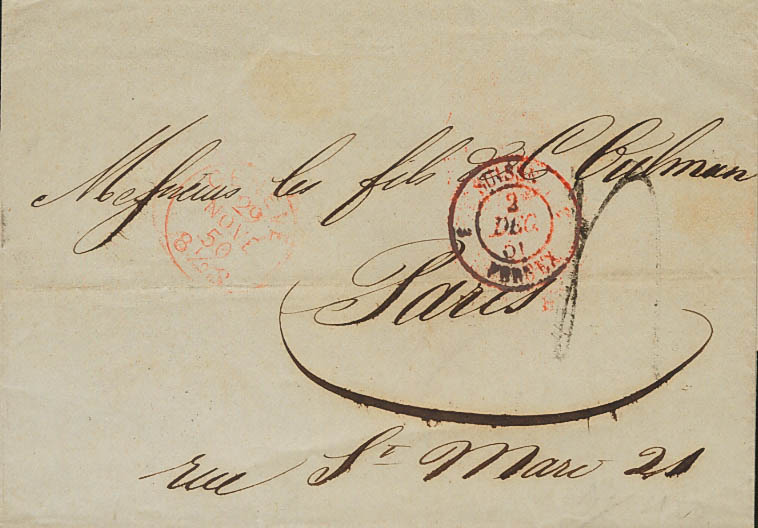 Messieurs les fils de C. Culman
Paris
rue St Marc 21
GENEVE
29
NOVE
50
8½ S
SUISSE
2
DEC.
51
FERNEX